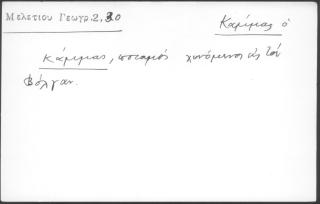 Μελετίου Γεωγρ.2,30
Κάμμας ὁ
Κάμμας, ποταμὸς χυνόμενος εἰς τὸν
Βόλγαν.